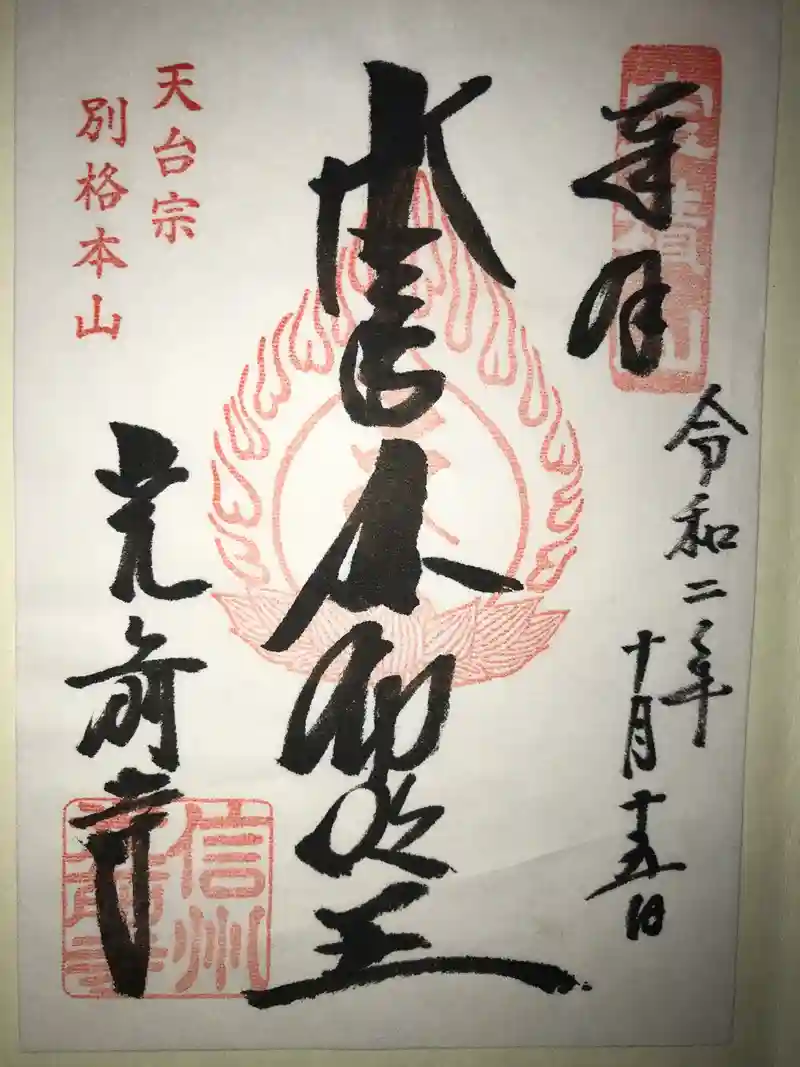 奉拝
令和二年
十月十五日
不動明王
天台宗
別格本山
光前寺
信州
光前寺